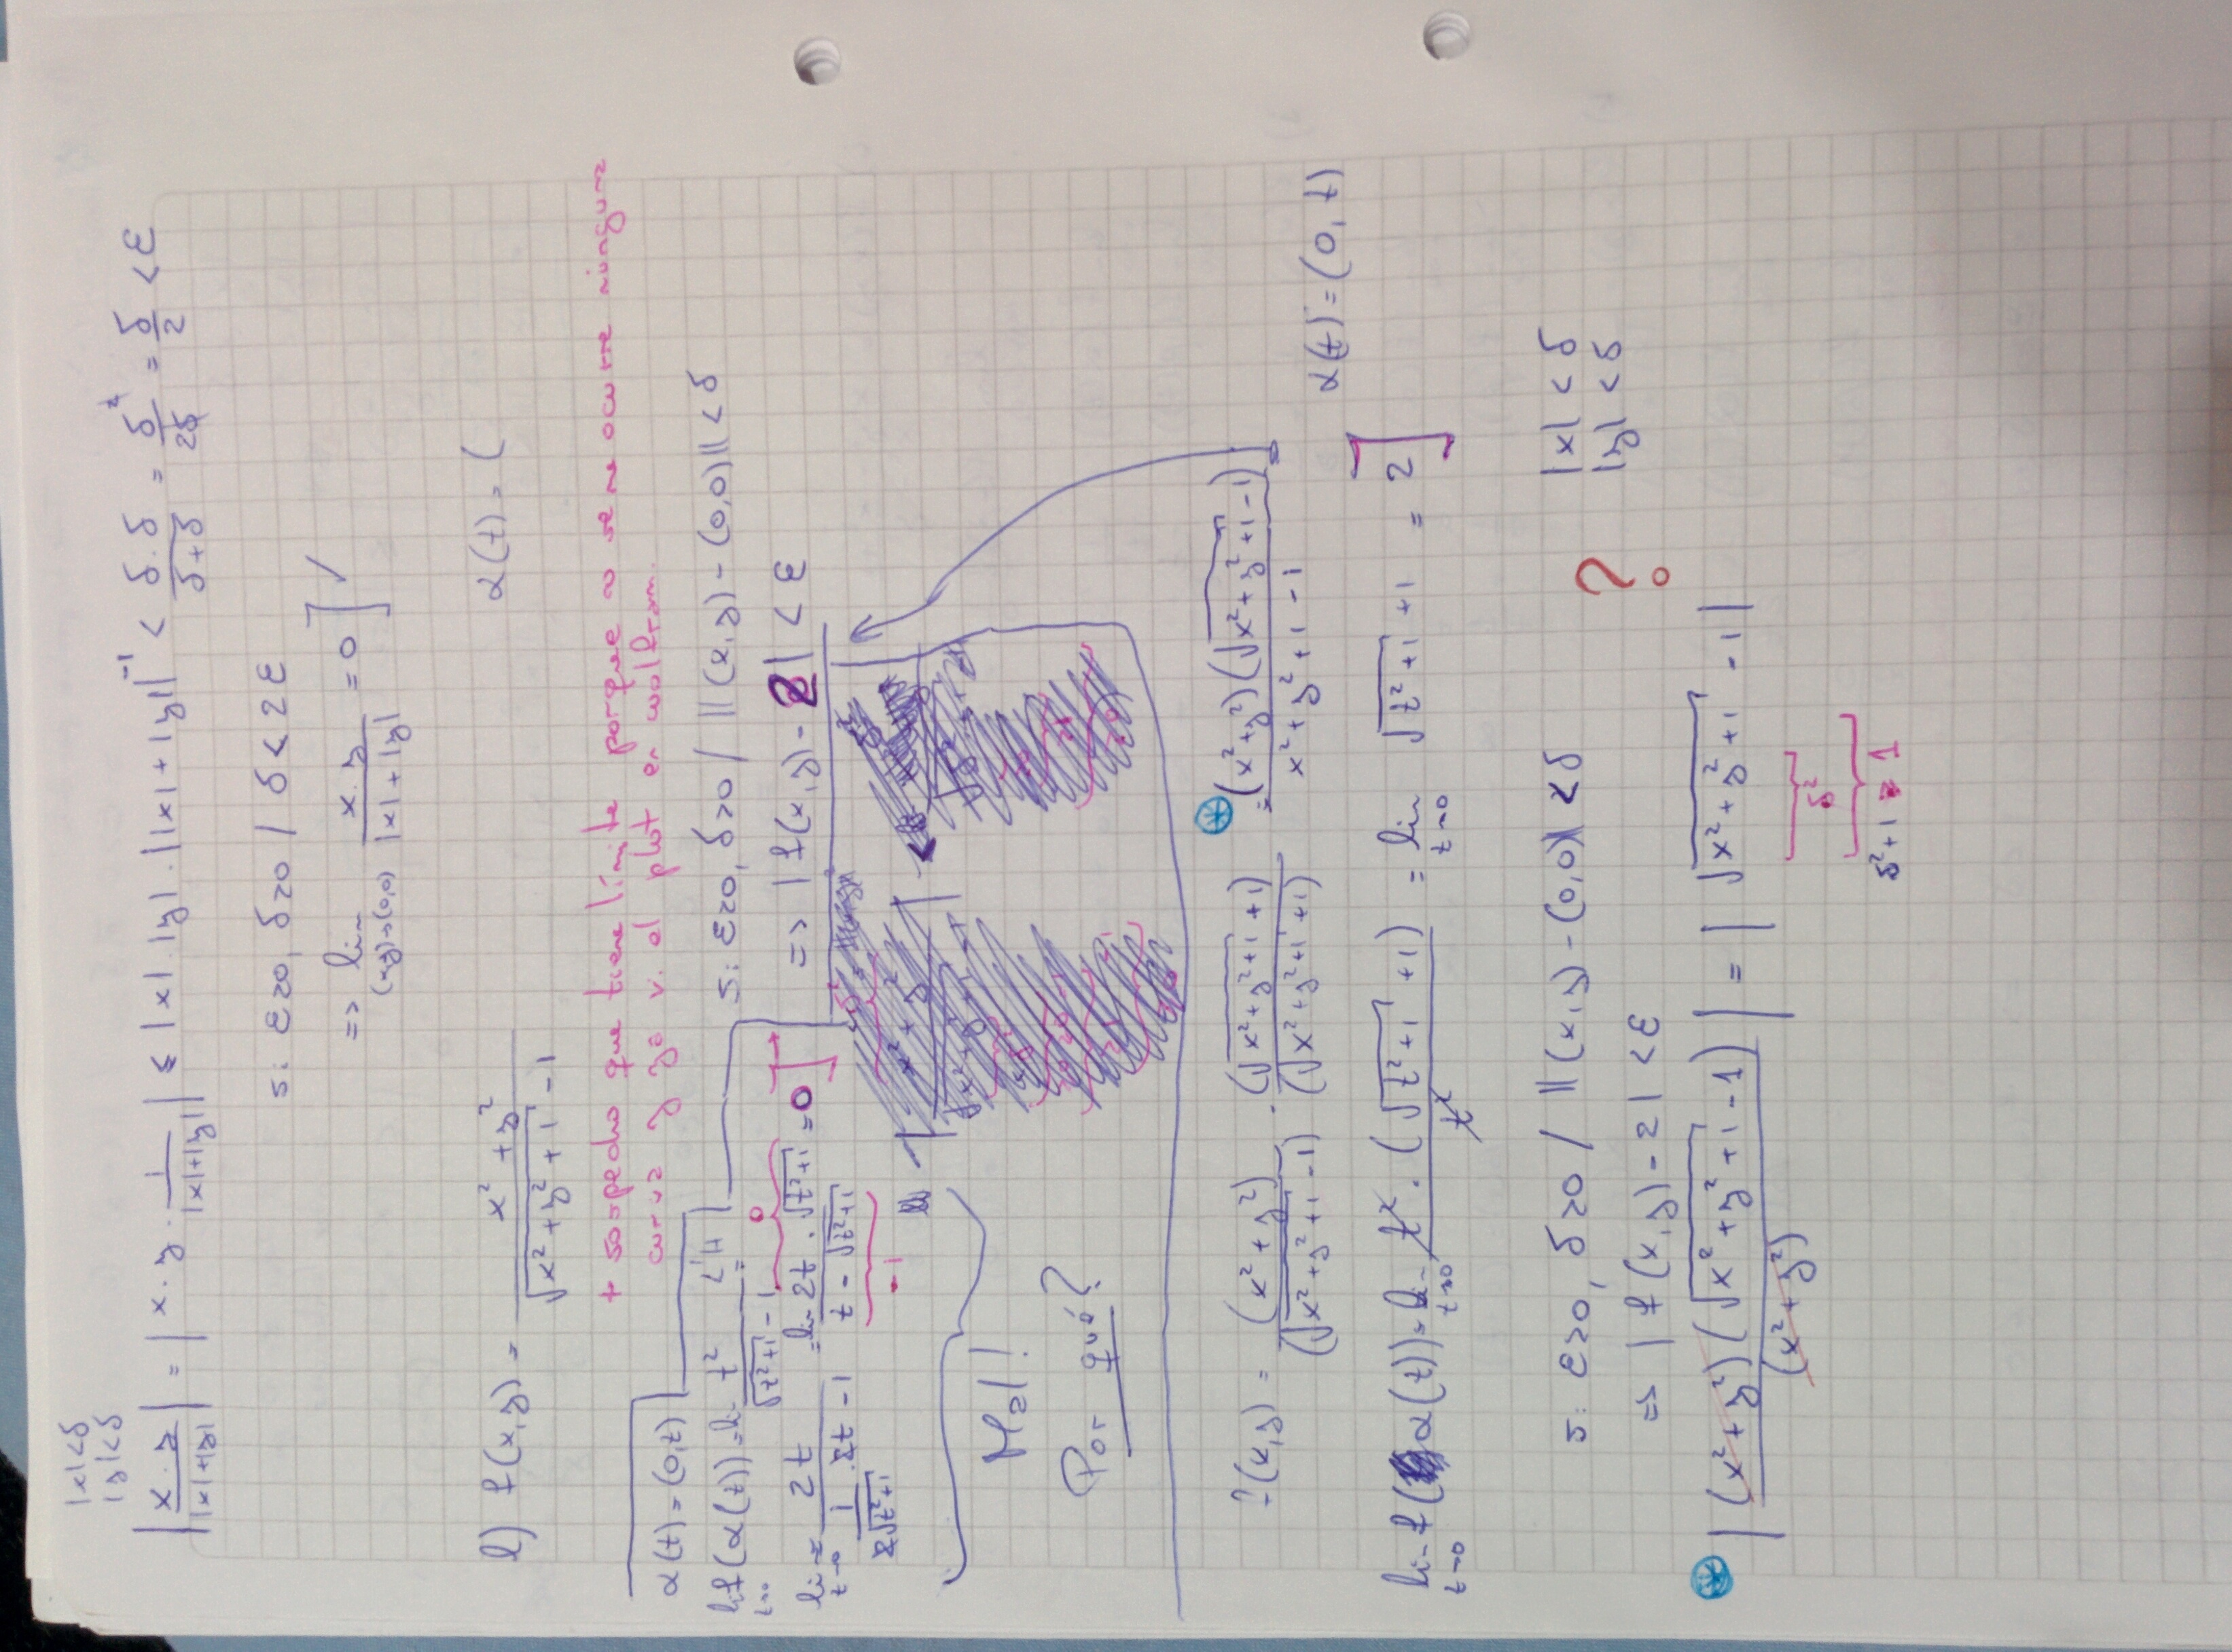 |x|<δ
|y|<δ
|x·y / |x|+|y|| = |x·y · 1/|x|+|y|| ≤ |x|·|y|·||x|+|y||⁻¹ < δ·δ/δ+δ = δ²/2δ = δ/2 < ε
si ε>0, δ>0 / δ < 2ε
=> lim (x,y)→(0,0) x·y / |x|+|y| = 0 ] ✓
l) f(x,y) = x²+y² / √x²+y²+1 - 1
α(t) = (
+ sospecho que tiene límite porque no se me ocurre ninguna
curva y ya vi el plot en wolfram.
α(t) = (0,t)
lim t→0 f(α(t)) = lim t² / √t²+1 - 1 = L'H
lim t→0 2t / 1/2√t²+1 · 2t - 1 = lim 2t·√t²+1 / t - √t²+1 = 0 ]
0
-1
si ε>0, δ>0 / ||(x,y) - (0,0)|| < δ
=> |f(x,y) - 2| < ε
Mal!
Por qué?
f(x,y) = (x²+y²) / (√x²+y²+1 - 1) · (√x²+y²+1 + 1) / (√x²+y²+1 + 1) = (x²+y²)(√x²+y²+1 - 1) / x²+y²+1 - 1
α(t) = (0, t)
lim t→0 f(α(t)) = lim t→0 t²·(√t²+1 + 1) / t² = lim t→0 √t²+1 + 1 = 2 ]
si ε>0, δ>0 / ||(x,y) - (0,0)|| < δ
=> |f(x,y) - 2| < ε
?
|x| < δ
|y| < δ
|(x²+y²)(√x²+y²+1 - 1) / (x²+y²)| = |√x²+y²+1 - 1|
δ²
δ²+1 ≥ 1